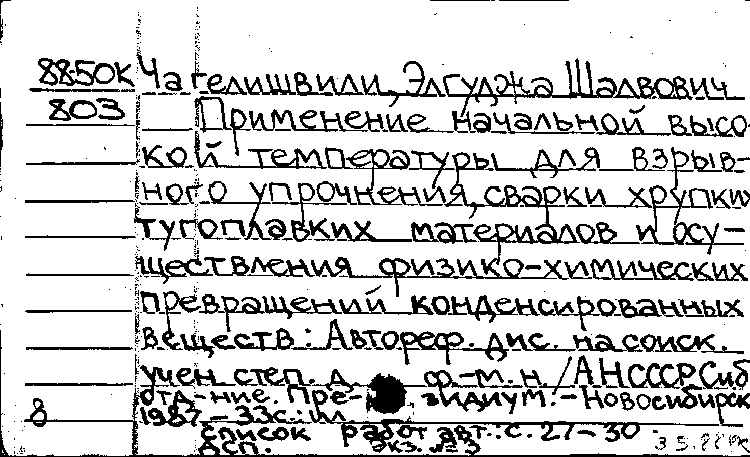 88-50К Чагелишвили, Элгуджа Шалвович
803 Применение начальной высо-
кой температуры для взрыв-
ного упрочнения, сварки хрупких
тугоплавких материалов и осу-
ществления физико-химических
превращений конденсированных
веществ: Автореф. дис. на соиск.
учен. степ. д. ф.-м.н. / АН СССР, Сиб.
отд-ние. Пре- зидиум. - Новосибирск
8 1987. - 33с.: ил.
список работ авт.: с. 27-30.
ДСП. экз. № 3